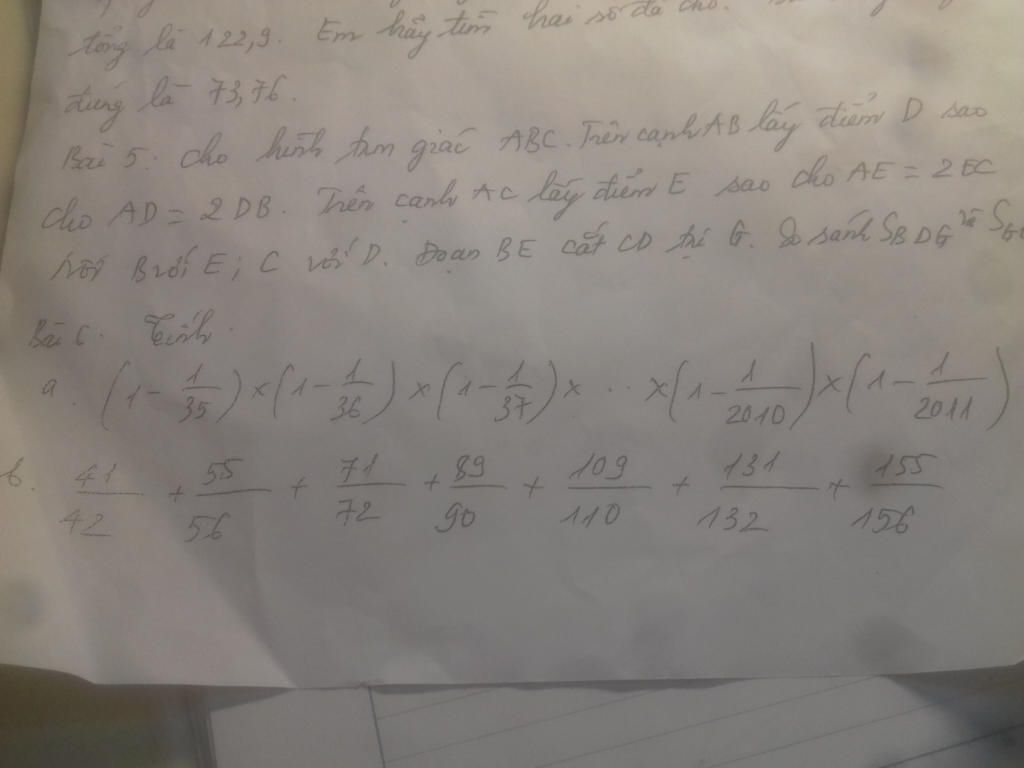 hai số đã cho.
tổng là 122,9. Em hãy tìm
đúng là 73,76.
Bài 5. Cho hình tam giác ABC. Trên cạnh AB lấy điểm D sao
cho AD = 2 DB. Trên cạnh AC lấy điểm E sao cho AE = 2 EC
Nối B với E; C với D. Đoạn BE cắt CD tại G. So sánh SBDG và
Bài 6. Tính.
a. (1 - 1/35) × (1 - 1/36) × (1 - 1/37) × ... × (1 - 1/2010) × (1 - 1/2011)
b. 41/42 + 55/56 + 71/72 + 89/90 + 109/110 + 131/132 + 155/156